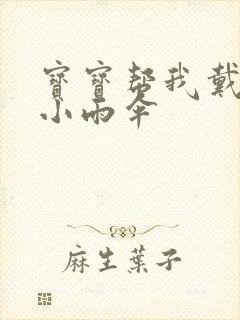 寶寶幫我戴
小雨傘
麻生葉子